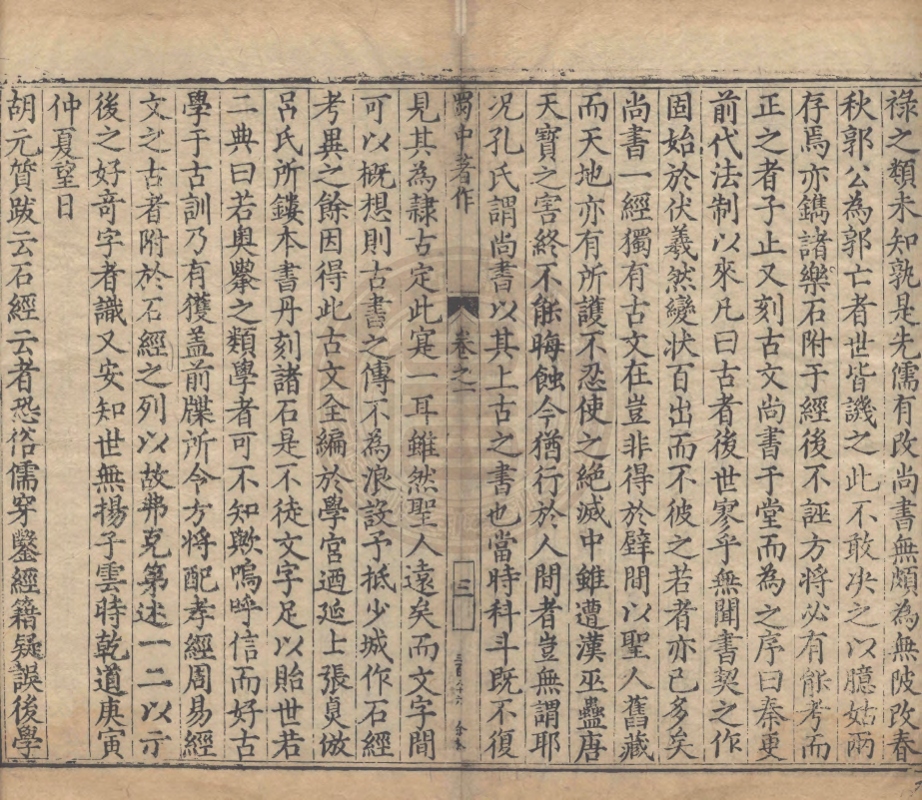 祿之類未知孰是先儒有改尚書無頗為無陂改春
秋郭公為郭亡者世皆譏之此不敢决之以臆姑兩
存焉亦鐫諸樂石附于經後不誣方將必有能考而
正之者子止又刻古文尚書于堂而為之序曰秦更
前代法制以來凡曰古者後世寥乎無聞書契之作
固始於伏羲然變状百出而不彼之若者亦已多矣
尚書一經獨有古文在豈非得於壁間以聖人舊藏
而天地亦有所護不忍使之絶滅中雖遭漢巫蠱唐
天寶之害終不能晦蝕今猶行於人間者豈無謂耶
况孔氏謂尚書以其上古之書也當時科斗既不復
蜀中著作
卷之一
三
見其為隷古定此寔一耳雖然聖人遠矣而文字間
可以概想則古書之傳不為浪設予抵少城作石經
考異之餘因得此古文全編於學宮廼延上張㒪倣
吕氏所鏤本書丹刻諸石是不徒文字足以貽世若
二典曰若奥䉶之類學者可不知歟嗚呼信而好古
學于古訓乃有獲盖前牒所令方將配孝經周易經
文之古者附於石經之列以故弗克第述一二以示
後之好竒字者識又安知世無揚子雲時乾道庚寅
仲夏望日
胡元質跋云石經云者恐俗儒穿鑿經籍疑誤後學